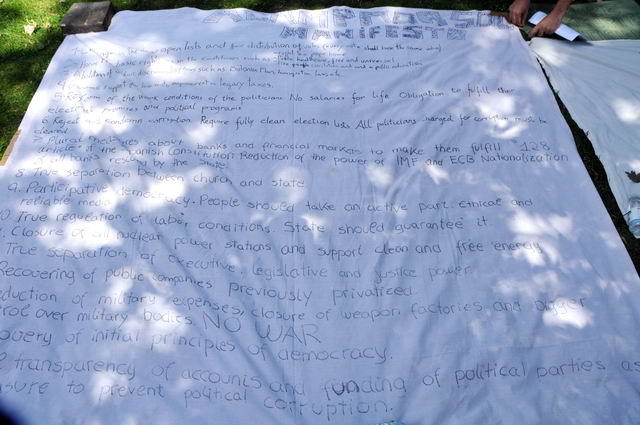 MANIFESTO
open lists and fair distribution of votes (every vote should have the same value)
basic rights in the constitution such as Public healthcare, free and universal
such as Bolonia Plan, Immigration laws etc
legacy taxes.
of the work conditions of the politicians No salaries for Life Obligation to fulfill their
electoral and political programs
6. Reject and condemn corruption. Require fully clean election lists All politicians charged for corruption must be
cleared
7. Plural measures about banks and financial markets to make them fulfill 128
article of the Spanish Constitution Reduction of the power of IMF and ECB Nationalization
of all banks rescued by the State.
8. True separation between church and state
9. Participative democracy. People should take an active part. Ethical and
reliable media
10. True regulation of labor conditions. State should guarantee it.
Closure of all nuclear power stations and support clean and free energy.
True separation of executive, legislative and justice power.
Recovering of public companies previously privatized.
eduction of military expenses, closure of weapon factories and bigger
trol over military bodies. NO WAR
overy of initial principles of democracy.
transparency of accounts and funding of political parties as
asure to prevent political corruption.